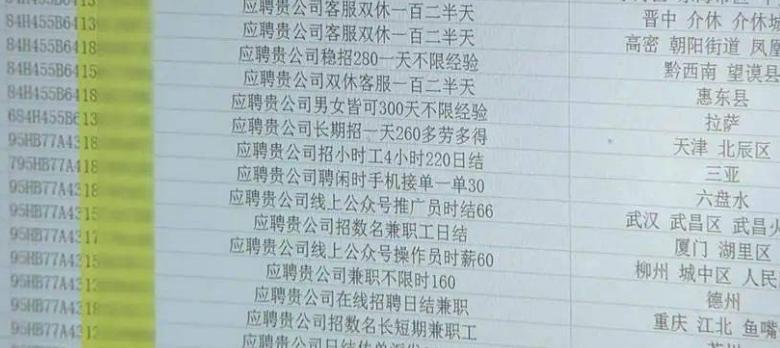 84H455B6413 应聘贵公司客服双休一百二半天
84H455B6413 应聘贵公司客服双休一百二半天 晋中 介休 介休城
84H455B6418 应聘贵公司稳招280一天不限经验 高密 朝阳街道 凤凰
84H455B6415 应聘贵公司双休客服一百二半天 黔西南 望谟县
84H455B6418 应聘贵公司男女皆可300天不限经验 惠东县
684H455B613 应聘贵公司长期招一天260多劳多得 拉萨
95HB77A4318 应聘贵公司招小时工4小时220日结 天津 北辰区
795HB77A418 应聘贵公司聘闲时手机接单一单30 三亚
95HB77A4318 应聘贵公司线上公众号推广员时结66 六盘水
95HB77A4315 应聘贵公司招数名兼职工日结 武汉 武昌区 武昌
95HB77A4317 应聘贵公司线上公众号操作员时薪60 厦门 湖里区
95HB77A4315 应聘贵公司兼职不限时160 柳州 城中区 人民
95HB77A4312 应聘贵公司在线招聘日结兼职 德州
95HB77A4318 应聘贵公司招数名长短期兼职工 重庆 江北 鱼嘴
95HB77A4312